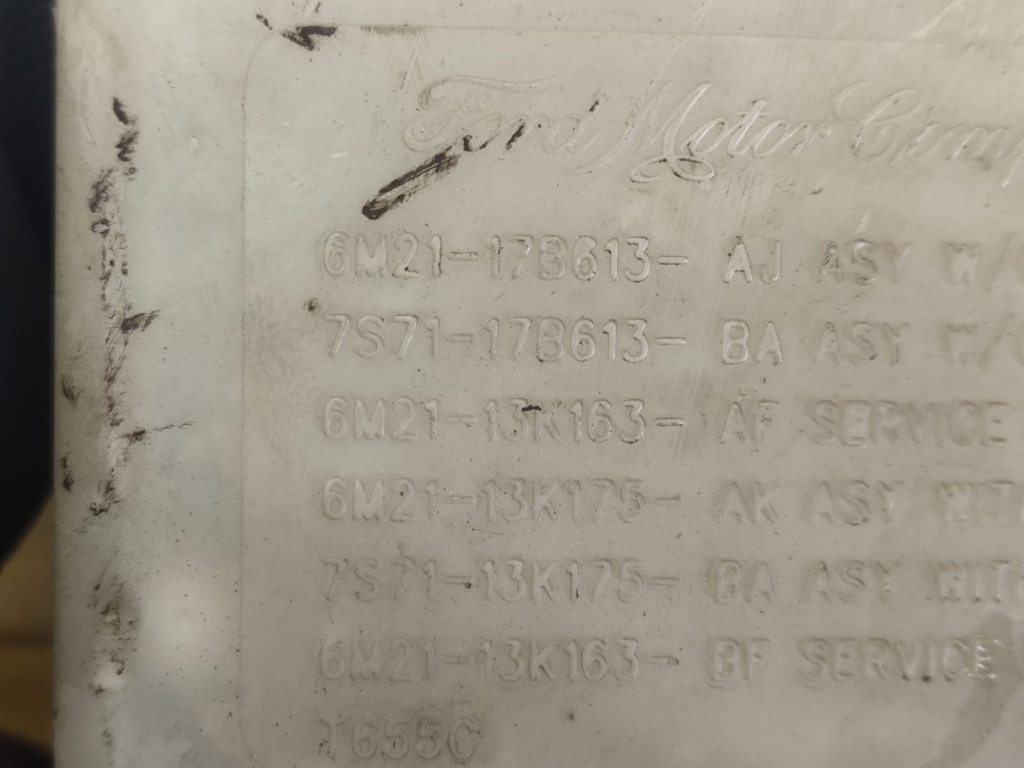 Ford Motor Comp
6M21-17B613- AJ ASY W/
7S71-17B613- BA ASY W/
6M21-13K163- AF SERVICE
6M21-13K175- AK ASY WIT
7S71-13K175- BA ASY WIT
6M21-13K163- BF SERVICE
T655C